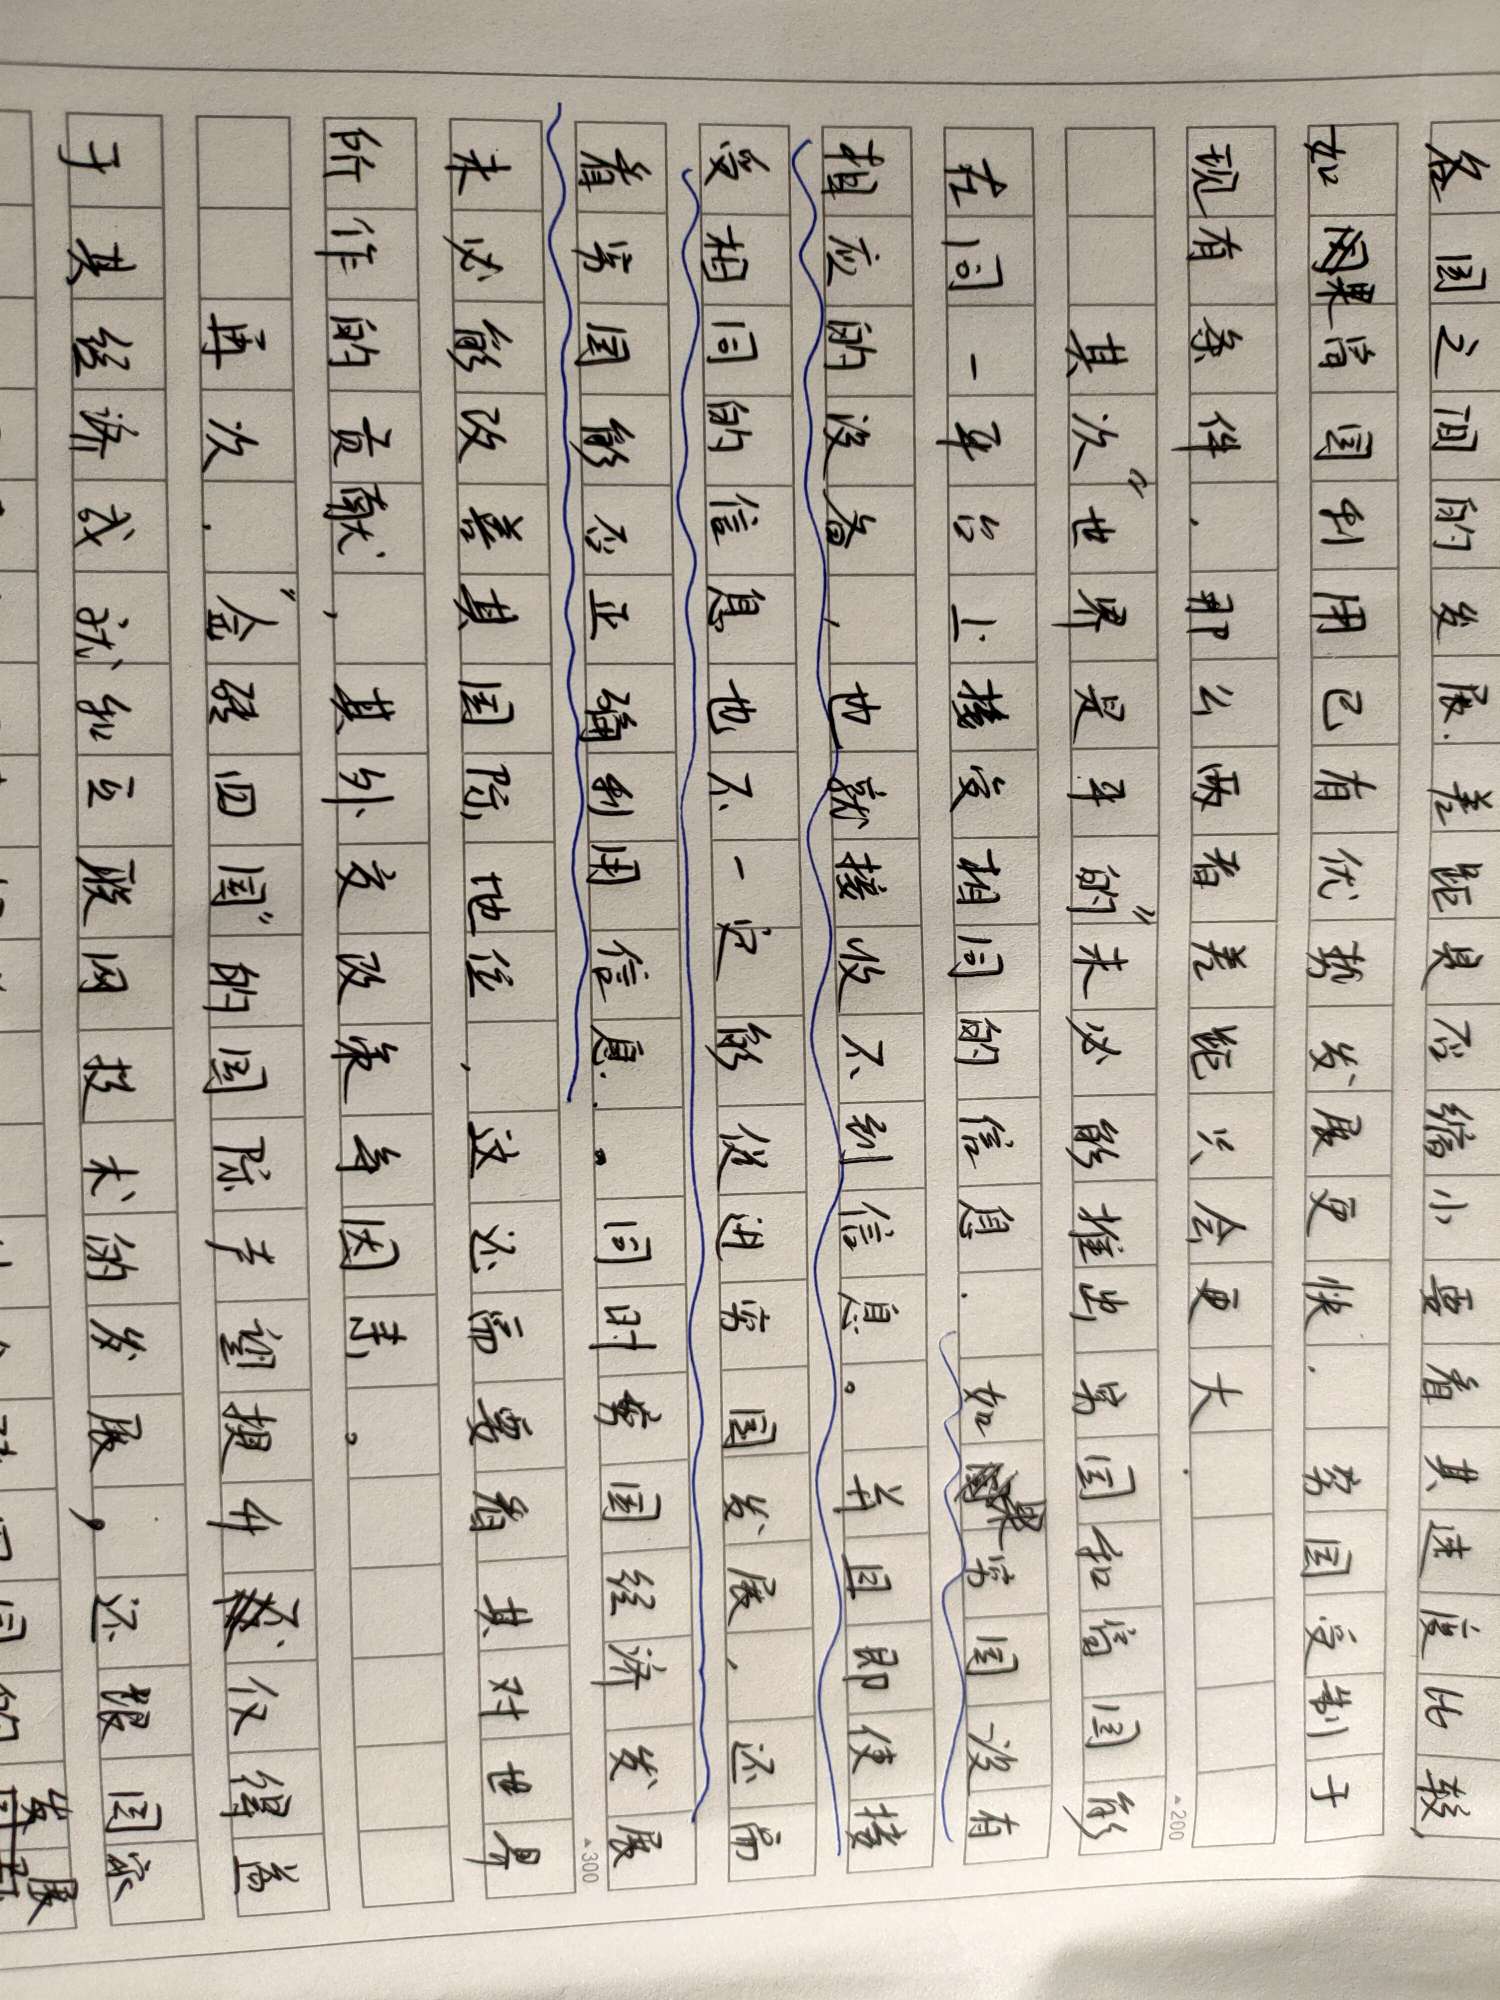 各国之间的发展.差距是否缩小要看其速度比较,
如果富国利用已有优势发展更快.穷国受制于
现有条件.那么两者差距只会更大.
其次“世界是平的”未必能推出穷国和富国能
▲200
在同一平台上接受相同的信息.如果穷国没有
相应的设备,也就接收不到信息。并且即使接
受相同的信息也不一定能促进穷国发展,还需
看穷国能否正确利用信息.。同时穷国经济发展
▲300
未必能改善其国际地位,这还需要看其对世界
所作的贡献,其外交政策等因素。
再次.“金砖四国”的国际声望提升不仅得益
于其经济成就和互联网技术的发展,还跟国家